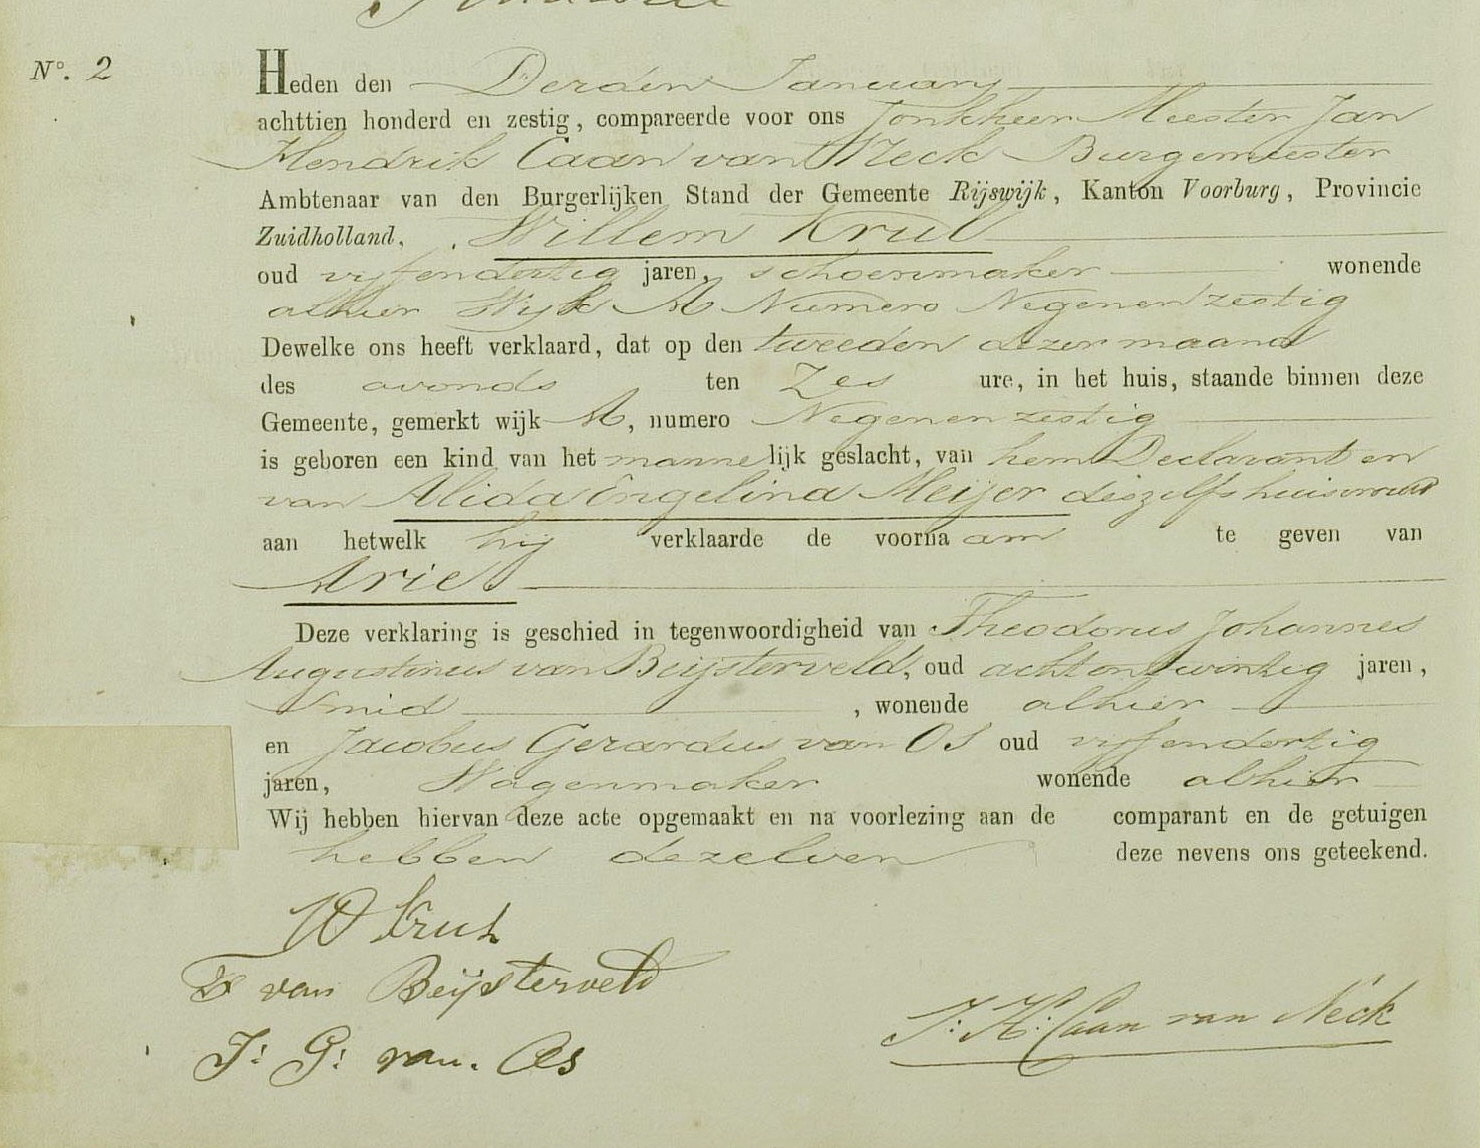 No. 2
Heden den Derden January
achttien honderd en zestig, compareerde voor ons Jonkheer Meester Jan
Hendrik Caan van Neck Burgemeester
Ambtenaar van den Burgerlijken Stand der Gemeente Rijswijk, Kanton Voorburg, Provincie
Zuidholland, Willem Krul
oud vijfendertig jaren, schoenmaker wonende
alhier Wijk A Numero Negenenzestig
Dewelke ons heeft verklaard, dat op den tweeden dezer maand
des avonds ten Zes ure, in het huis, staande binnen deze
Gemeente, gemerkt wijk A, numero Negenenzestig
is geboren een kind van het mannelijk geslacht, van hem Declarant en
van Alida Engelina Meijer deszelfs huisvrouw
aan hetwelk hij verklaarde de voornaam te geven van
Arie
Deze verklaring is geschied in tegenwoordigheid van Theodorus Johannes
Augustinus van Beijsterveld, oud achtentwintig jaren,
Smid, wonende alhier
en Jacobus Gerardus van OS oud vijfendertig
jaren, Wagenmaker wonende alhier
Wij hebben hiervan deze acte opgemaakt en na voorlezing aan de comparant en de getuigen
hebben dezelven deze nevens ons geteekend.
W Krul
van Beijsterveld
J: G: van Os
J: H: Caan van Neck